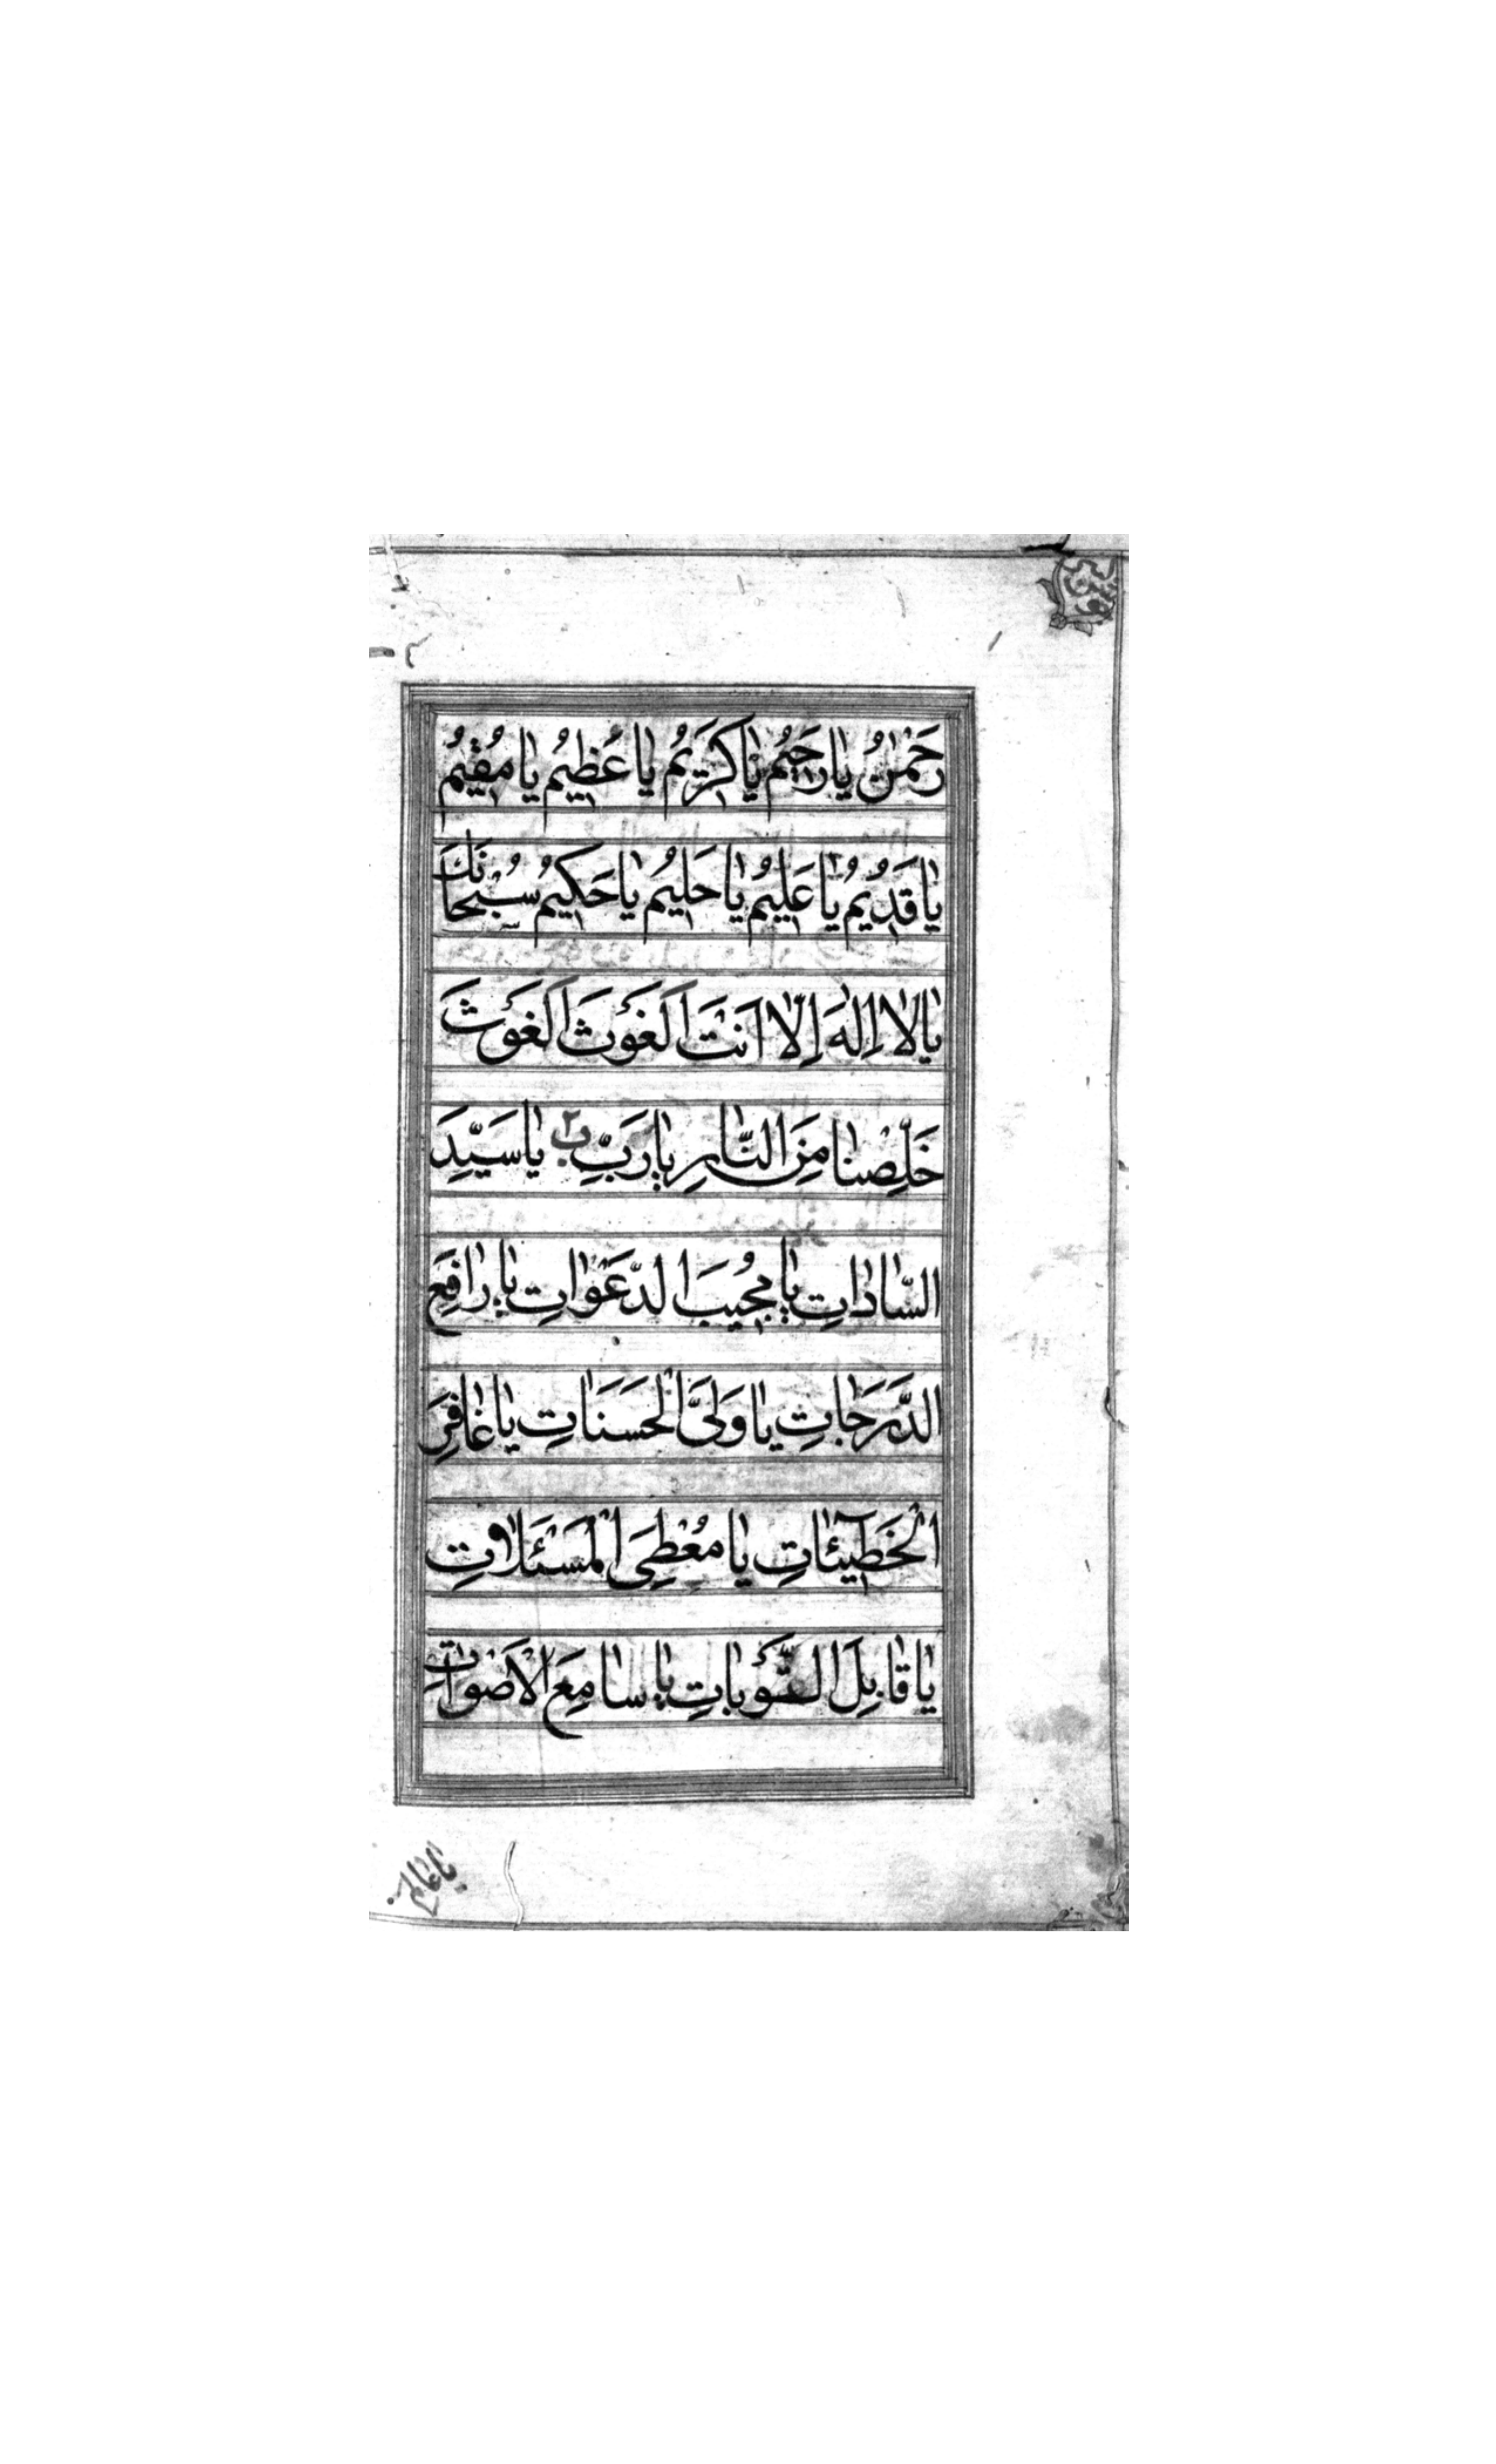 رَحْمٰنُ یٰا رَحیٖمُ یٰا كَریٖمُ یٰا عَظیٖمُ یٰا مُقیٖمُ
یٰا قَدیٖمُ یٰا عَلیٖمُ یٰا حَلیٖمُ یٰا حَكیٖمُ سُبْحٰانَكَ
یٰا لٰا اِلٰهَ اِلّٰا اَنْتَ الْغَوْثَ الْغَوْثَ
خَلِّصْنٰا مِنَ النّٰارِ یٰا رَبِّ ب ٢ یٰا سَیِّدَ
السّٰادٰاتِ یٰا مُجیٖبَ الدَّعَوٰاتِ یٰا رٰافِعَ
الدَّرَجٰاتِ یٰا وَلِیَّ الْحَسَنٰاتِ یٰا غٰافِرَ
الْخَطیٖٓئٰاتِ یٰا مُعْطِیَ الْمَسْئَلٰاتِ
یٰا قٰابِلَ التَّوْبٰاتِ یٰا سٰامِعَ الْاَصْوٰاتِ
یٰا عٰالِمَ